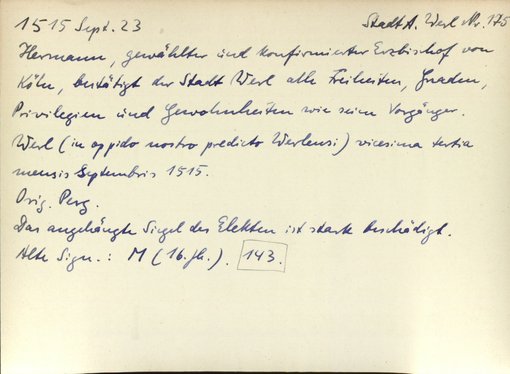 1515 Sept. 23 Stadt A. Werl Nr. 175
Hermann, gewählter und konfirmierter Erzbischof von
Köln, bestätigt der Stadt Werl alle Freiheiten, Gnaden,
Privilegien und Gewohnheiten wie seine Vorgänger.
Werl (in oppido nostro predicto Werlensi) vicesima tertia
mensis Septembris 1515.
Orig. Perg.
Das angehängte Siegel des Elekten ist stark beschädigt.
Alte Sign.: M (16. Jh.). 143.